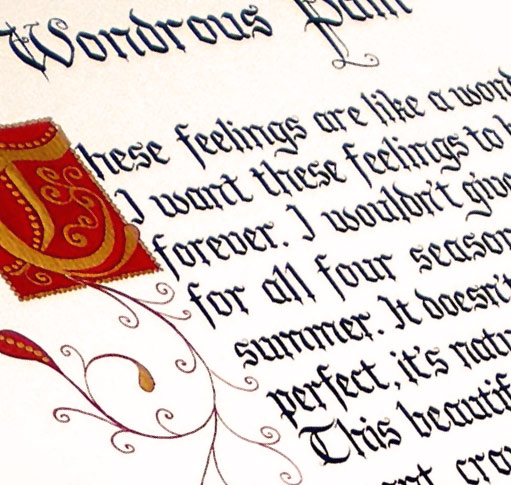 Wondrous Pain
These feelings are like a wond
I want these feelings to b
forever. I wouldn't give
for all four season
summer. It doesn't
perfect, it's natu
This beautif
nt crow